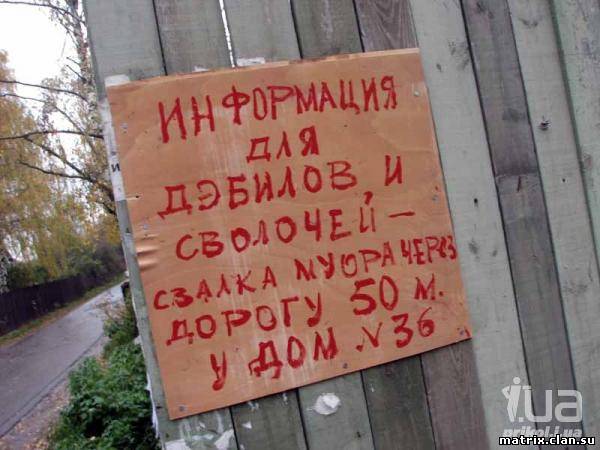 ИНФОРМАЦИЯ
ДЛЯ
ДЭБИЛОВ, И
СВОЛОЧЕЙ —
СВАЛКА МУОРА ЧЕРЕЗ
ДОРОГУ 50 М.
У ДОМ N 36
И
i.ua
prikol.i.ua
matrix.clan.su